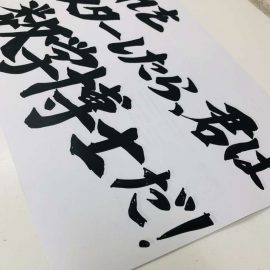 れを
スターしたら、君は
数学博士だ!